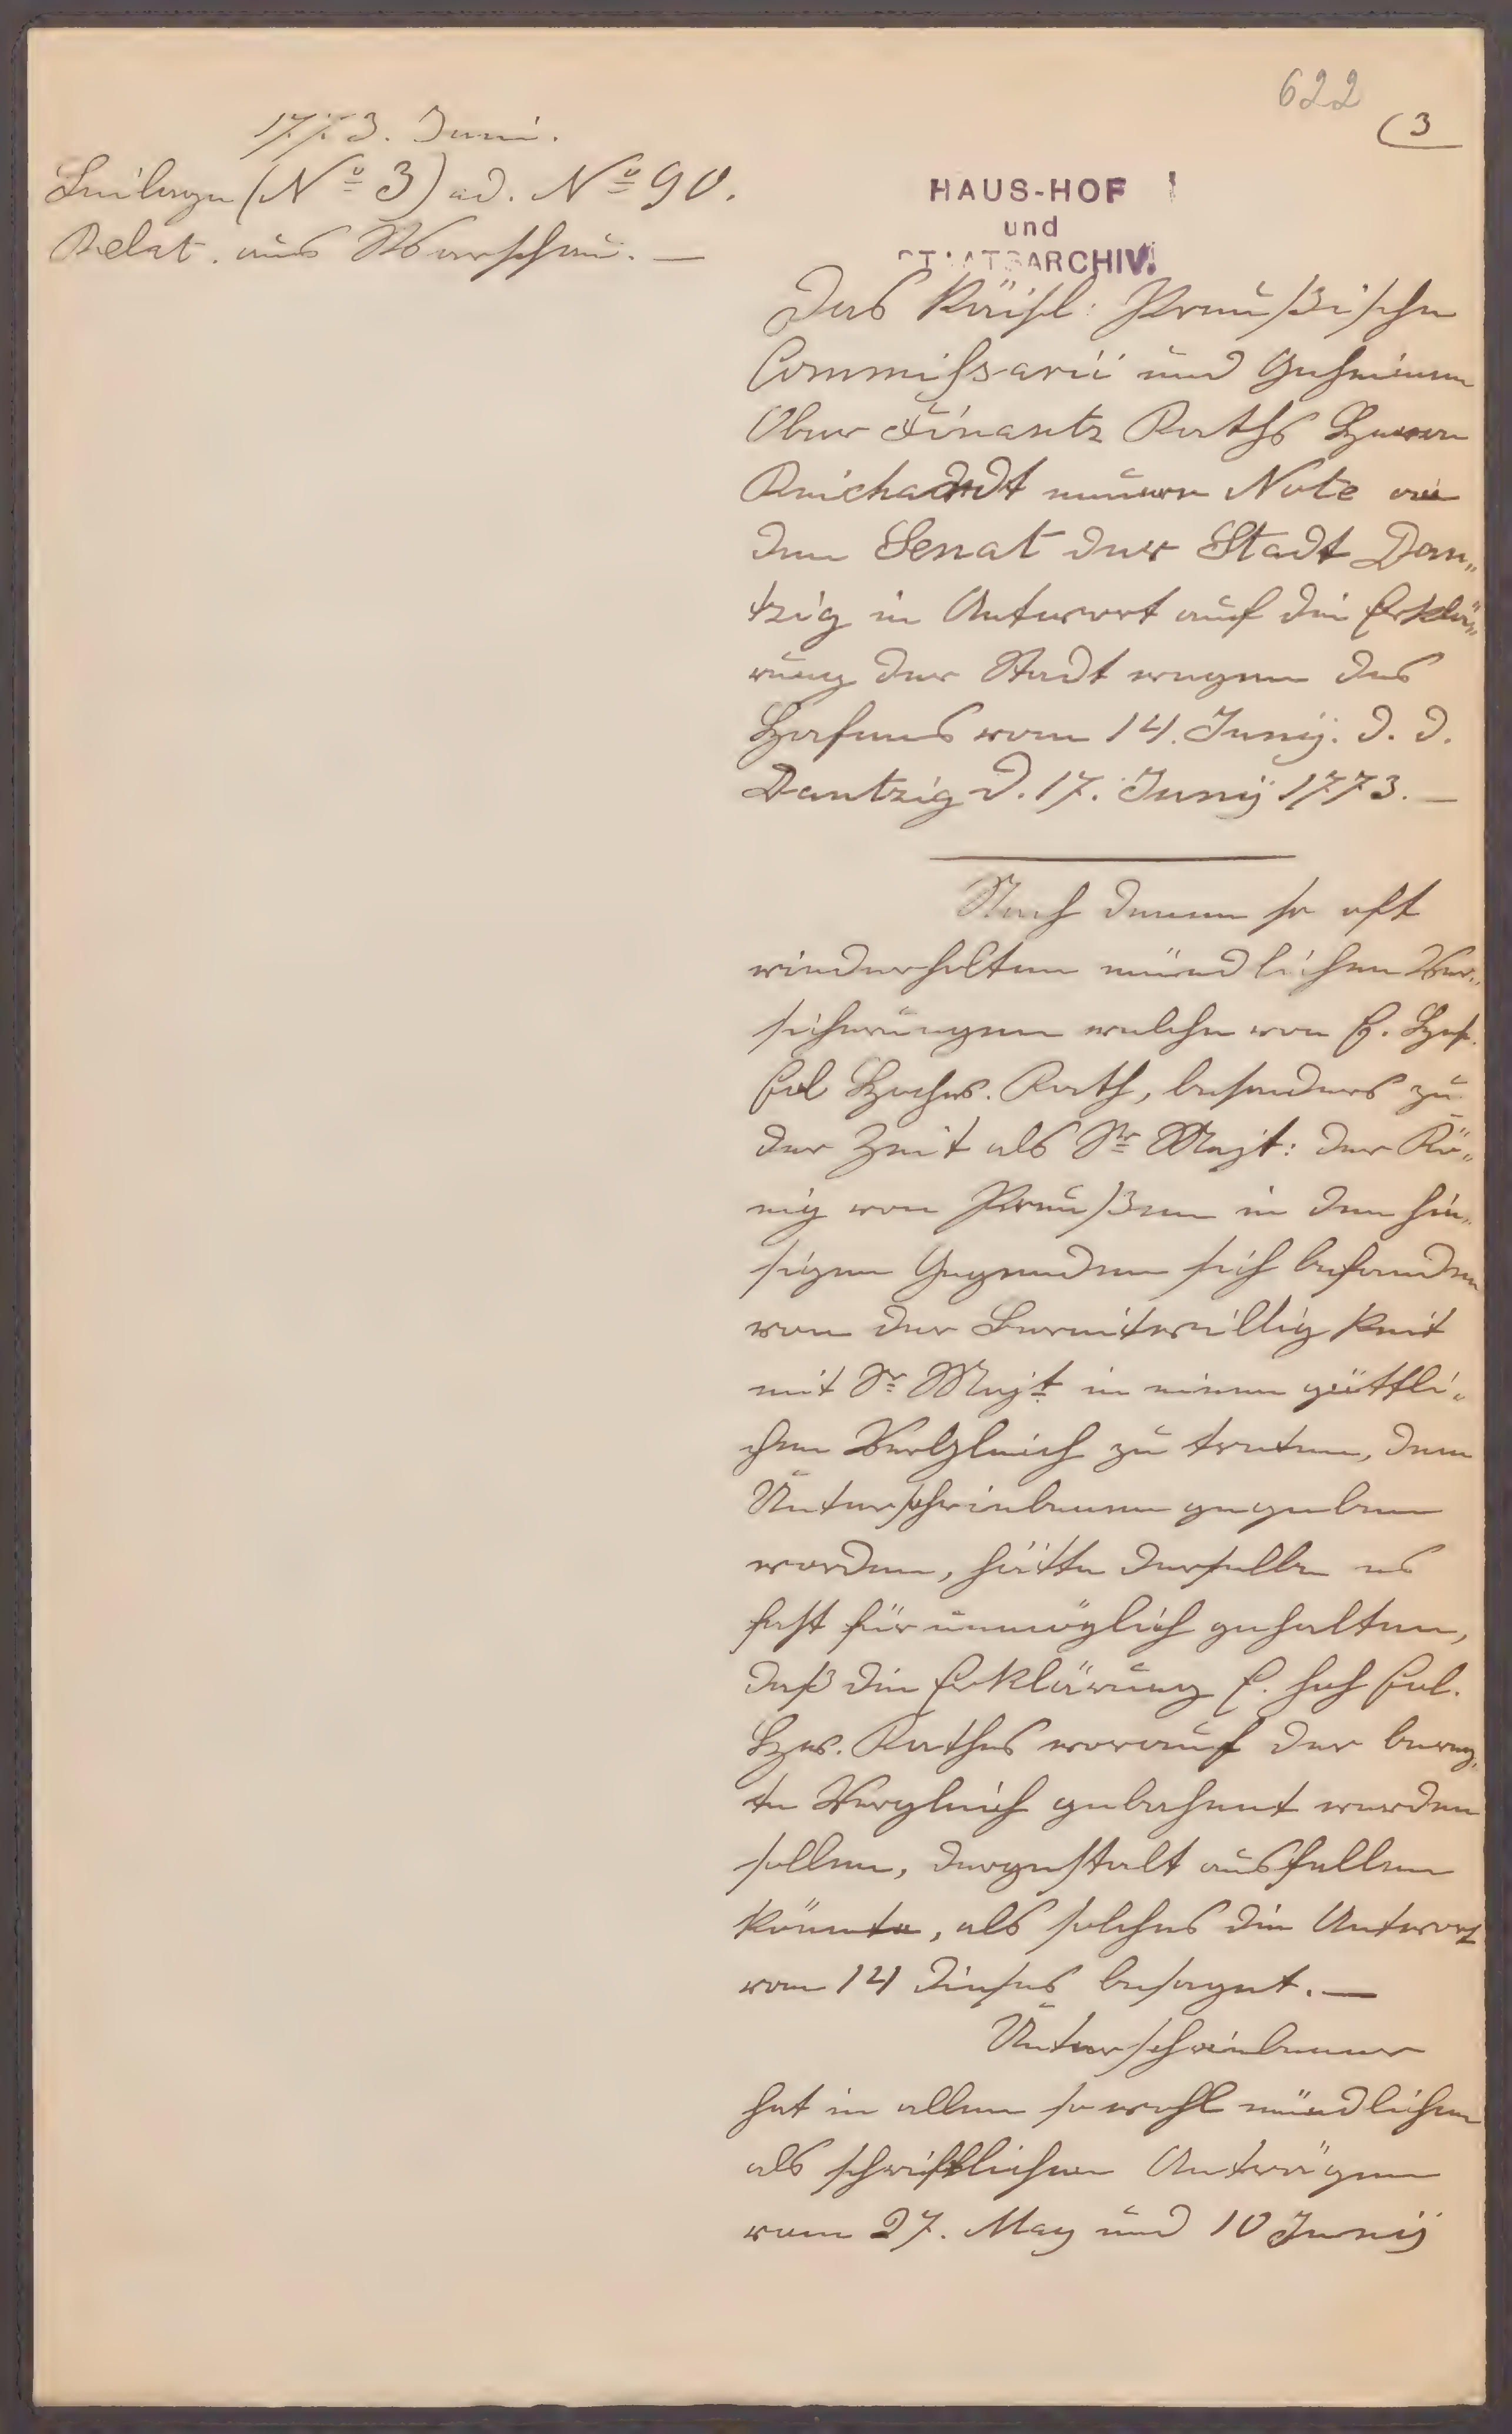 622
(3
1773. Juni.
Beilage (No 3) ad. No 90.
Relat. aus Warschau. —
HAUS-HOF
und
STAATSARCHIV.
Des König: Preußische
Commißarii und Geheimen
Ober Finantz Raths Herrn
Reichardt neuere Note an
den Senat der Stadt Dan„
tzig in Antwort auf die Erklä„
rung der Stadt wegen des
Hafens vom 14. Junij. d. d.
Dantzig d. 17. Junij 1773. —
Nach denen so oft
wiederholten mündlichen Ver„
sicherungen welche von E. Hoch
Edl Hochw. Rath, besonders zu
der Zeit als Sr Majt: der Kö„
nig von Preußen in den hie„
sigen Gegenden sich befanden
von der Bereitwilligkeit
mit Sr Majt in einen güttli„
chen Vergleich zu treten, dem
Unterschriebenen gegeben
worden, hätte derselbe es
fast für unmöglich gehalten,
daß die Erklärung E. hoch Edl.
Hw. Rathes worauf der bereg„
te Vergleich gebahnt werden
sollen, dergestalt ausfallen
könnte, als solches die Antwort
vom 14 dieses besaget. —
Unterschriebener
hat in allen so wohl mündlichen
als schriftlichen Anträgen
vom 27. May und 10 Junij